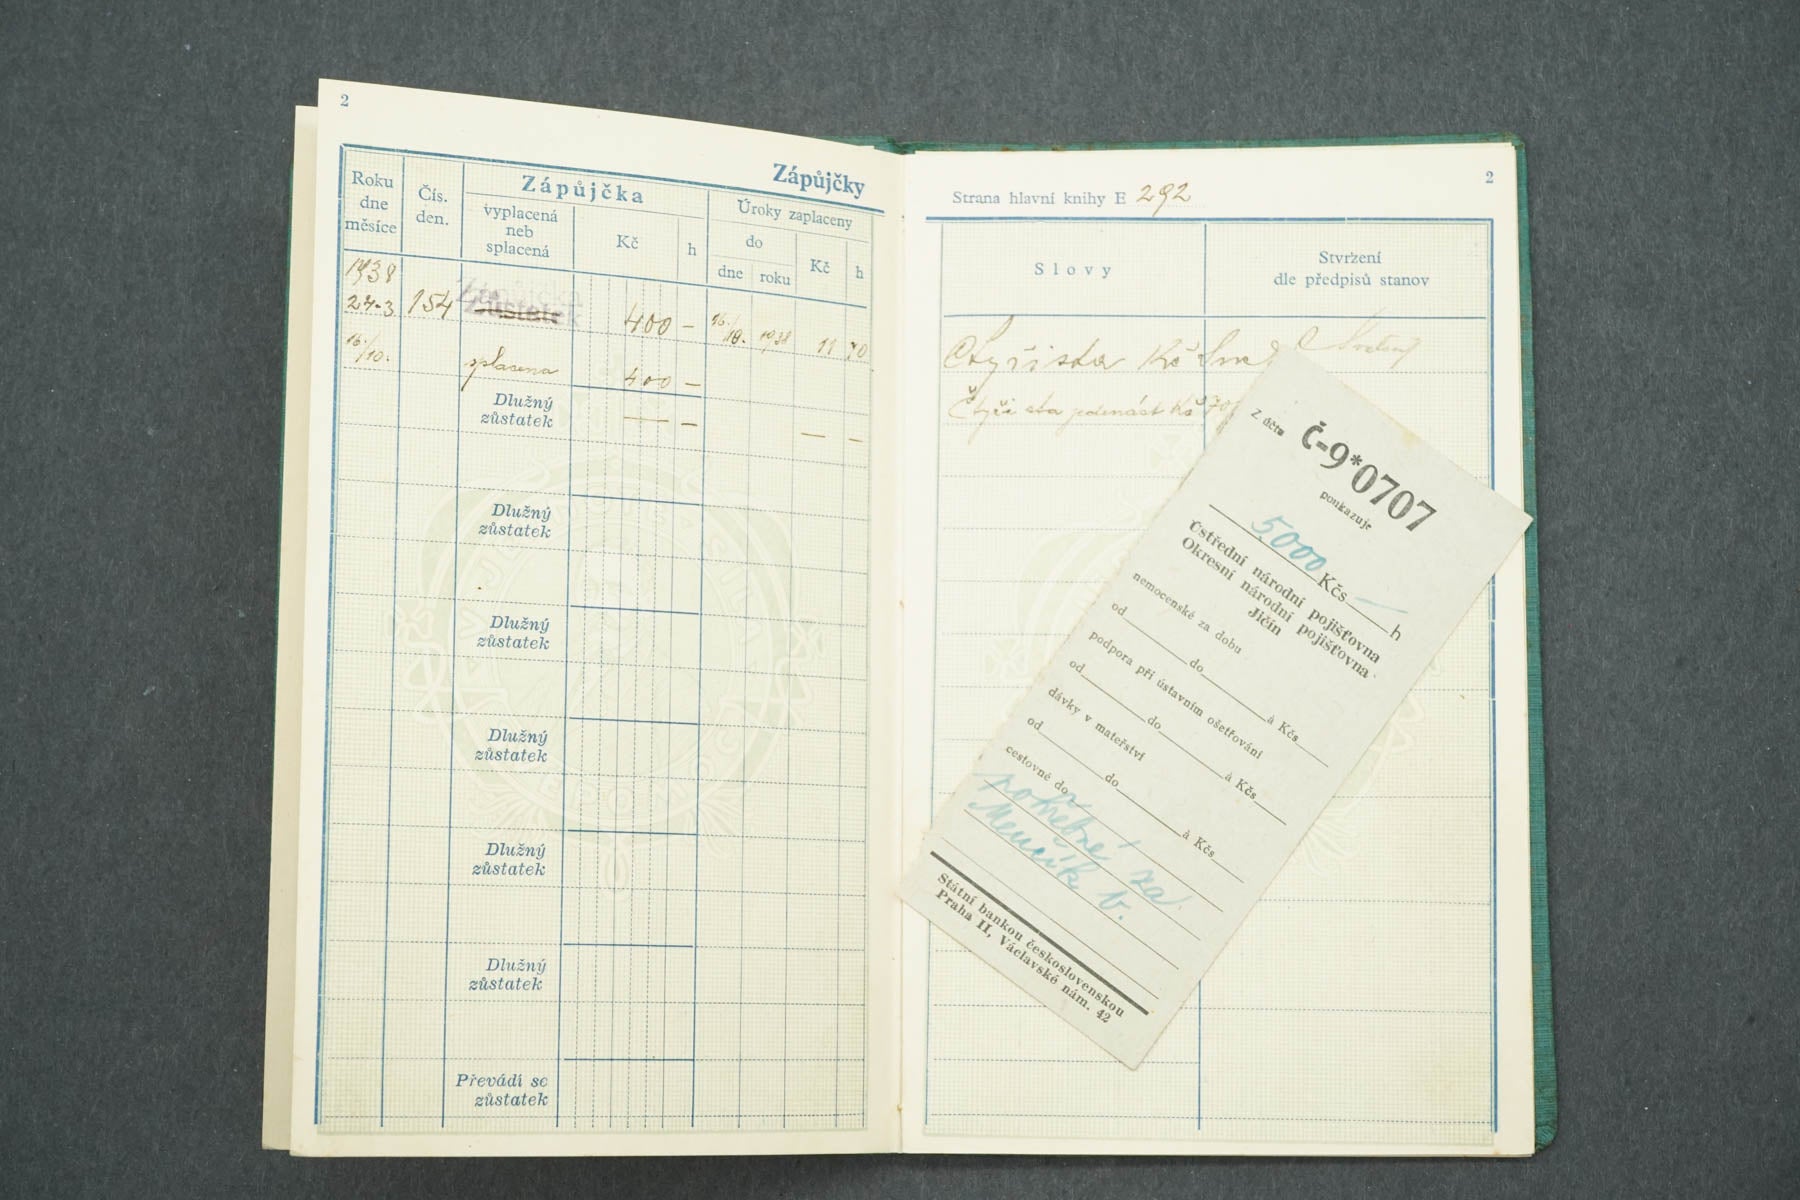 2
Zápůjčky
Roku
dne
měsíce
Čís.
den.
Zápůjčka
vyplacená
neb
splacená
Kč
h
Úroky zaplaceny
do
dne
roku
Kč
h
1938
27-3
154
Zůstatek
400 —
16./10.
1938
11
70
16./10.
splacena
400 —
Dlužný
zůstatek
— —
— —
Dlužný
zůstatek
Dlužný
zůstatek
Dlužný
zůstatek
Dlužný
zůstatek
Dlužný
zůstatek
Převádí se
zůstatek
2
Strana hlavní knihy E 292
Slovy
Stvrzení
dle předpisů stanov
Čtyřista Kč
Čtyři sta jedenáct Kč 70
Z účtu
Č-9*0707
poukazuje
5000 Kčs — h
Ústřední národní pojišťovna
Okresní národní pojišťovna
Jičín
nemocenské za dobu
od do à Kčs
podpora při ústavním ošetřování
od do à Kčs
dávky v mateřství
od do à Kčs
cestovné do
pohřebné za
Menčík b.
Státní bankou československou
Praha II, Václavské nám. 42